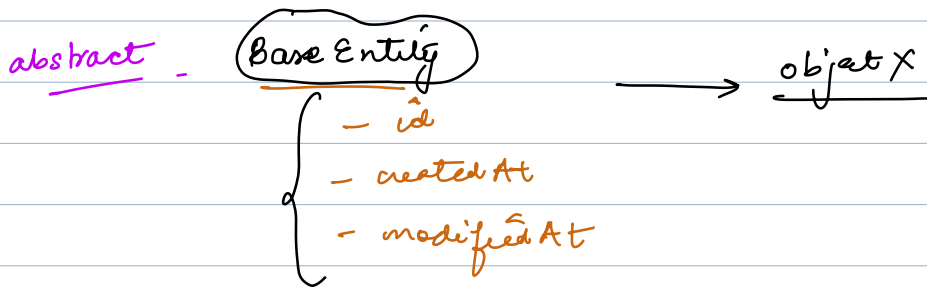 abstract - Base Entity → object X
- id
- createdAt
- modifiedAt